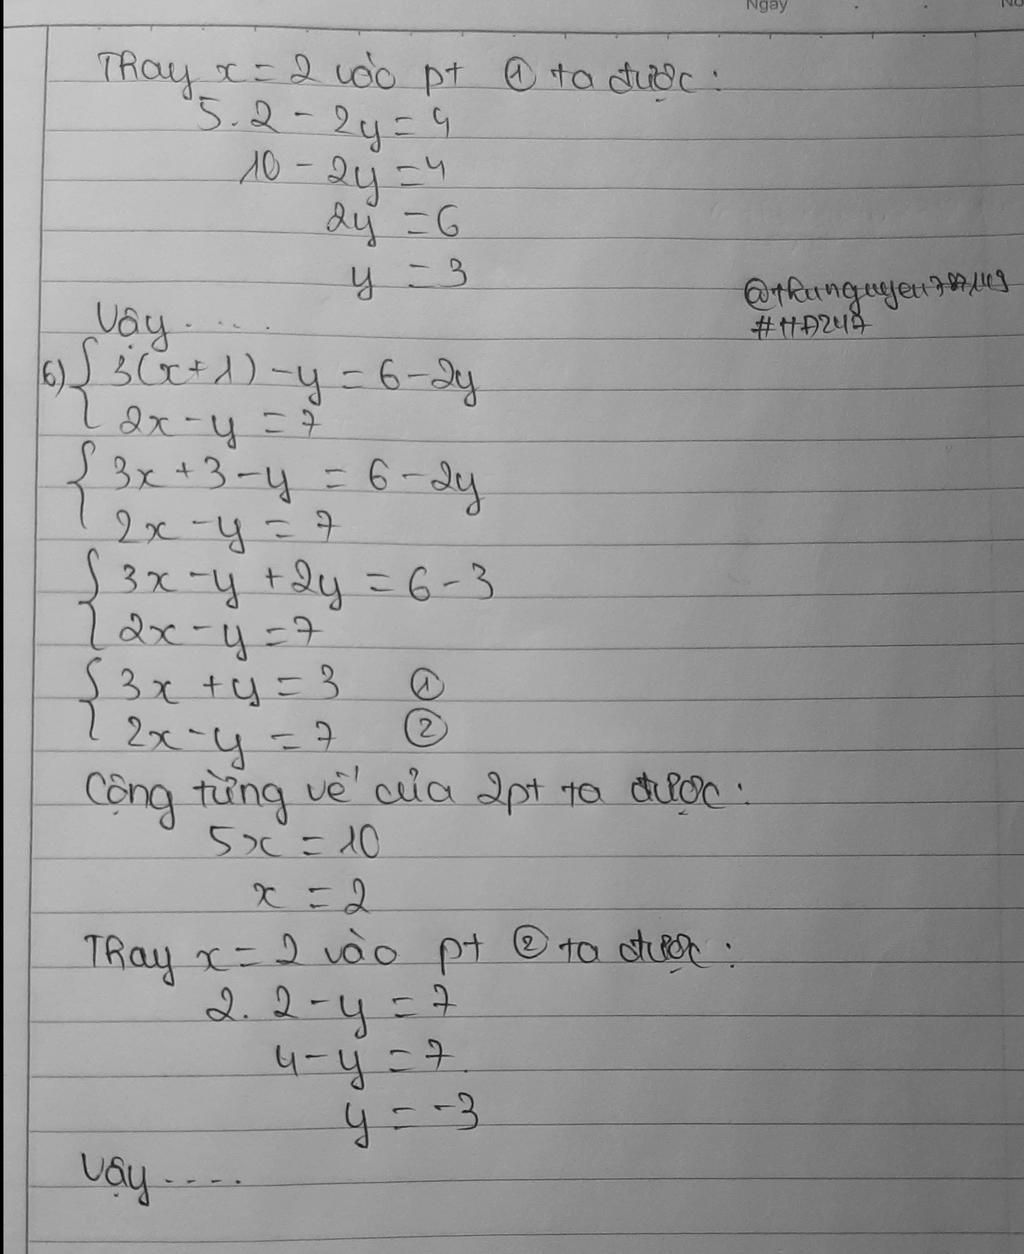 Ngày
No
Thay x = 2 vào pt ① ta được:
5.2 - 2y = 4
10 - 2y = 4
2y = 6
y = 3
#HĐ247
Vậy.....
6) { 3(x+1) - y = 6 - 2y
2x - y = 7
{ 3x + 3 - y = 6 - 2y
2x - y = 7
{ 3x - y + 2y = 6 - 3
2x - y = 7
{ 3x + y = 3 ①
2x - y = 7 ②
Cộng từng vế của 2pt ta được:
5x = 10
x = 2
Thay x = 2 vào pt ② ta được:
2.2 - y = 7
4 - y = 7
y = -3
Vậy.....